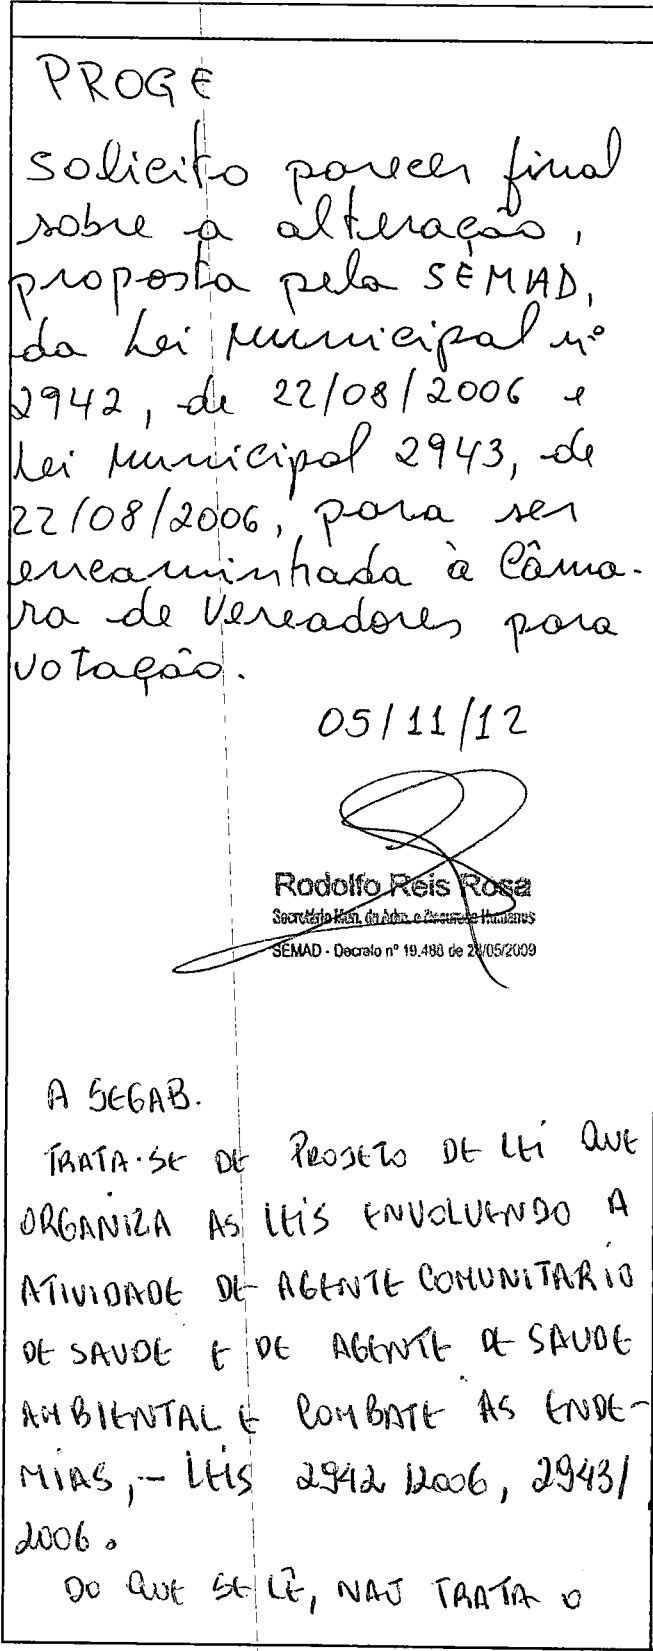 PROGE
Solicito parecer final
sobre a alteração,
proposta pela SEMAD,
da Lei Municipal nº
2942, de 22/08/2006 e
Lei Municipal 2943, de
22/08/2006, para ser
encaminhada à Câma-
ra de Vereadores para
votação.
05/11/12
Rodolfo Reis Rosa
Secretário Mun. de Adm. e Recursos Humanos
SEMAD - Decreto nº 19.488 de 28/05/2009
A SEGAB.
TRATA-SE DE PROJETO DE LEI QUE
ORGANIZA AS LEIS ENVOLVENDO A
ATIVIDADE DE AGENTE COMUNITARIO
DE SAUDE E DE AGENTE DE SAUDE
AMBIENTAL E COMBATE AS ENDE-
MIAS, - LEIS 2942/2006, 2943/
2006.
DO QUE SE LÊ, NAO TRATA O